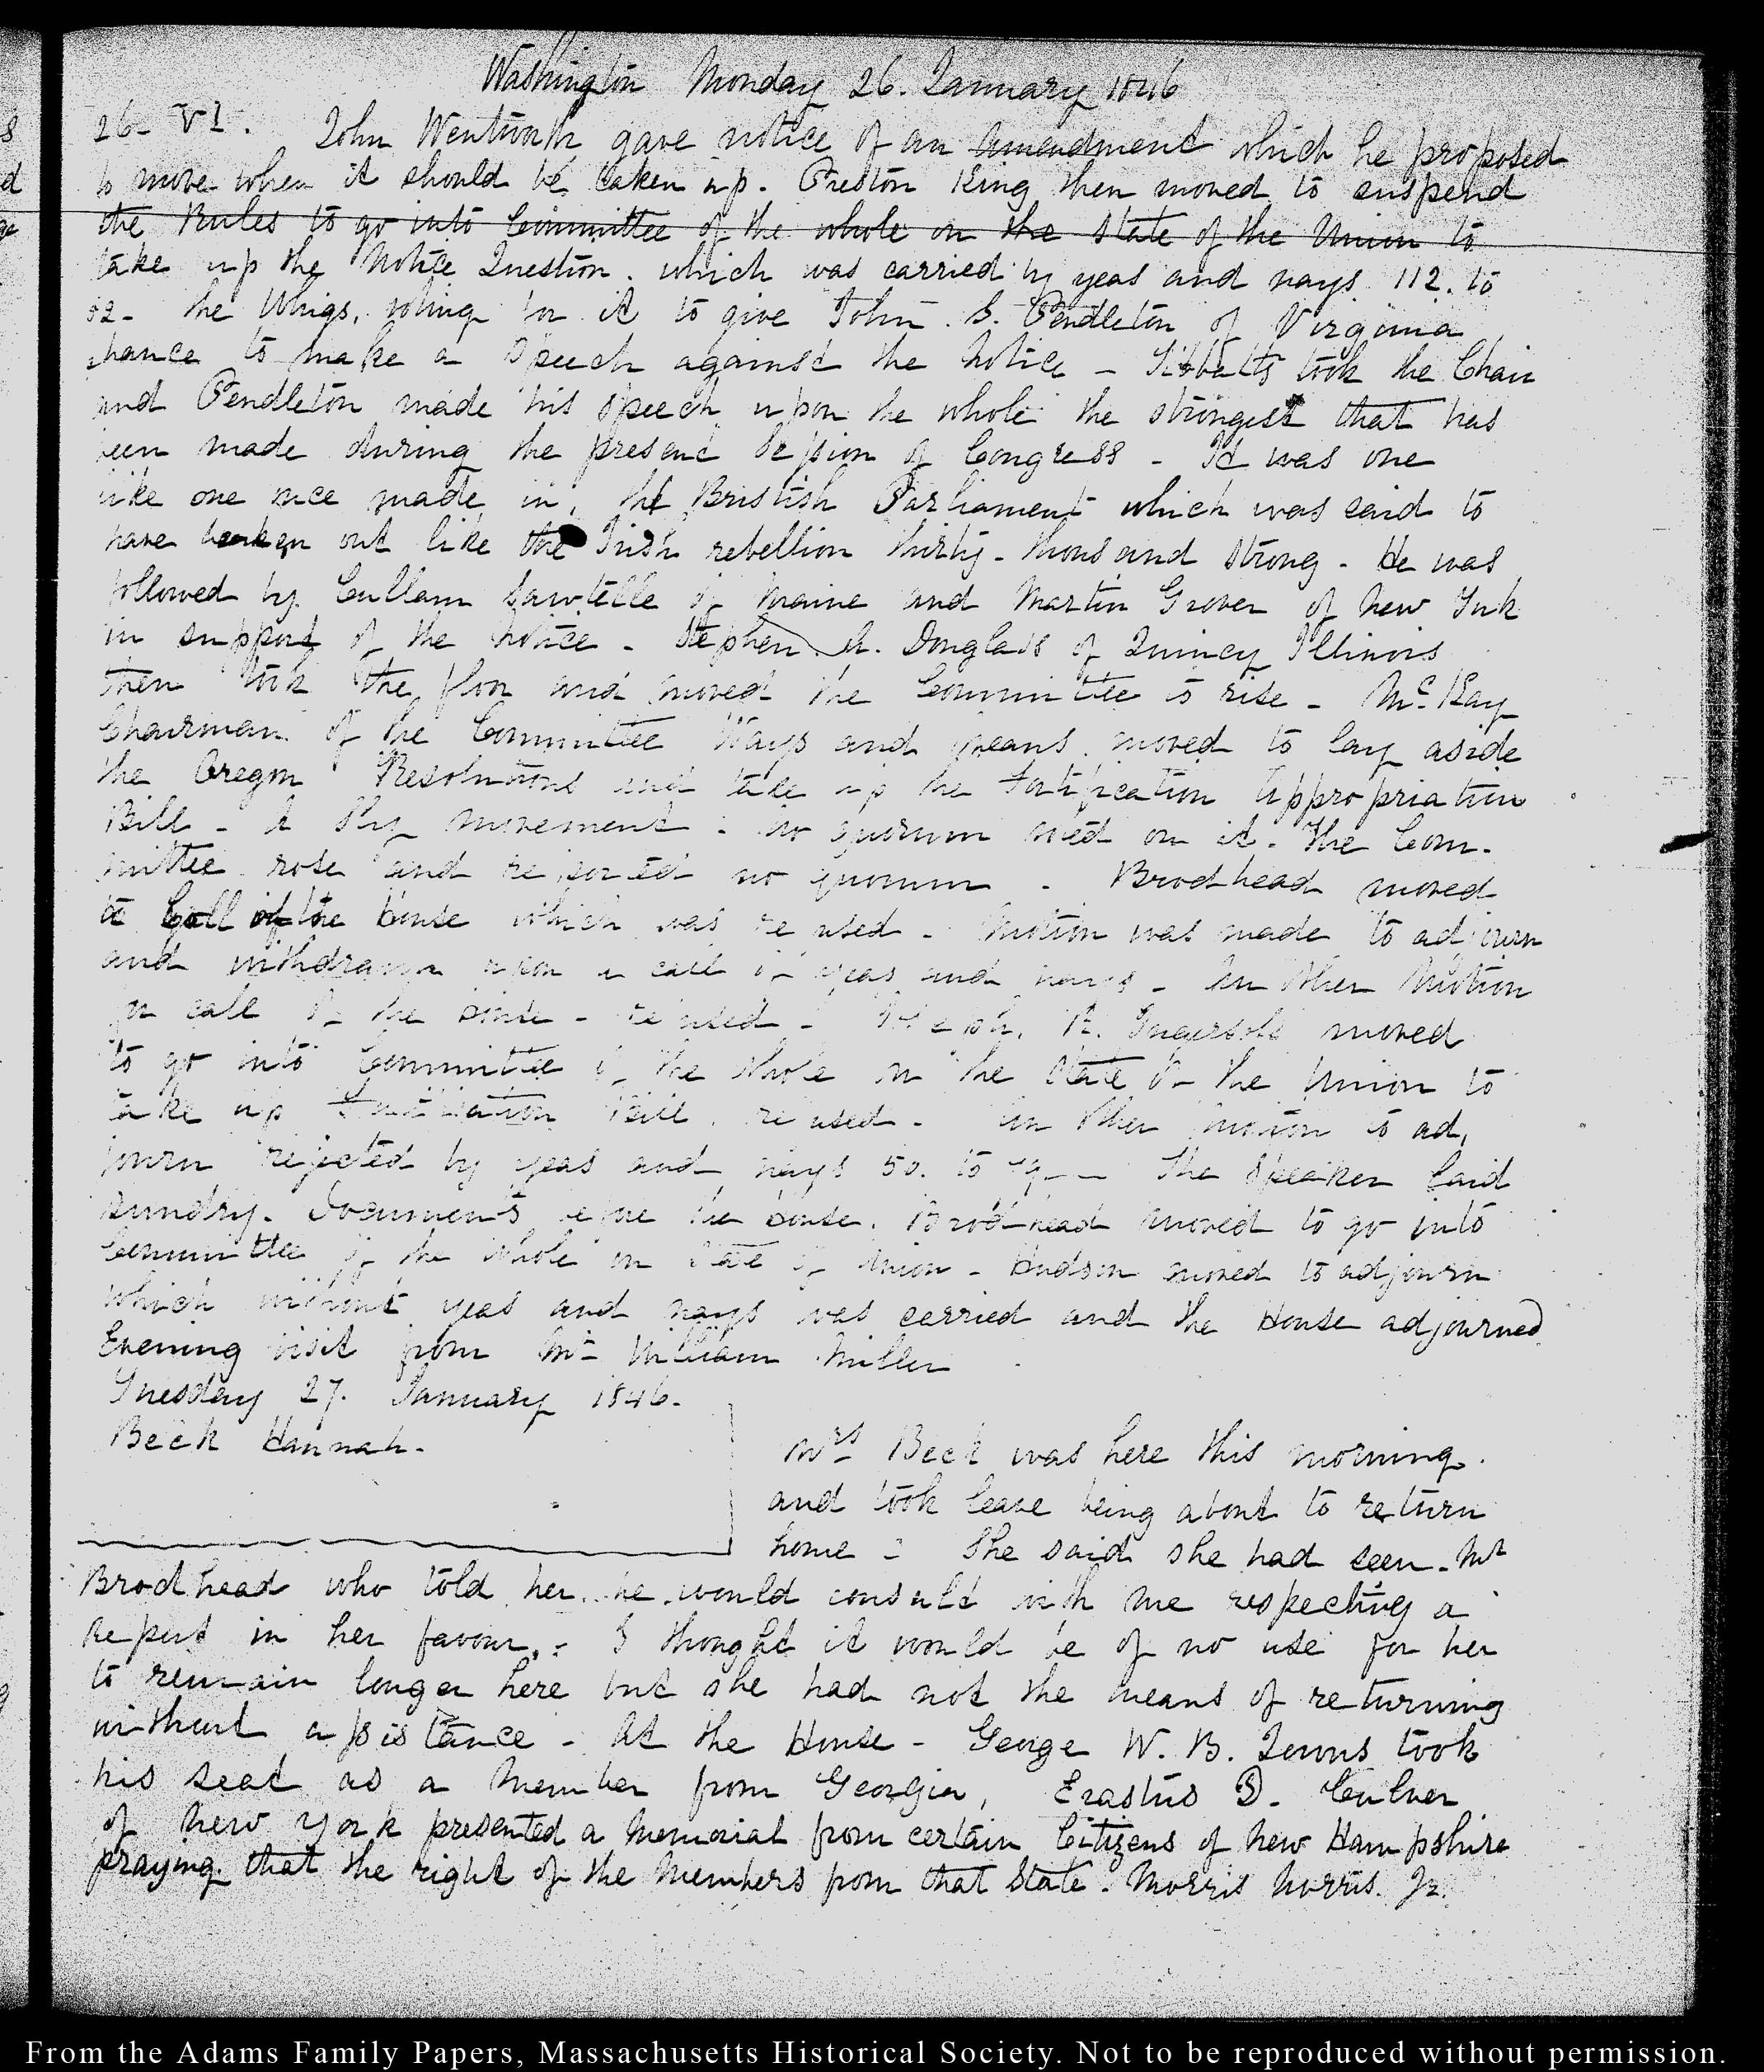 Washington Monday 26. January 1846
26. VI. John Wentworth gave notice of an amendment which he proposed
to move when it should be taken up. Preston King then moved to suspend
the Rules to go into Committee of the whole on the state of the Union to
take up the Notice Question. which was carried by yeas and nays 112. to
82 - the Whigs, voting for it to give John. S. Pendleton of Virginia
chance to make a Speech against the Notice - Tibbatts took the Chair
and Pendleton made his speech upon the whole the strongest that has
been made during the present Session of Congress - It was one
like one once made in, the Bristish Parliament which was said to
have broken out like the Irish rebellion thirty-thousand strong. He was
followed by Cullam Sawtelle of Maine and Martin Grover of New York
in support of the Notice - Stephen. A. Douglass of Quincy Illinois
then took the floor and moved the Committee to rise - Mc. Kay
Chairman of the Committee Ways and means. moved to lay aside
the Oregon Resolutions and take up the Fortification Appropriation
Bill - A Sly movement - no quorum voted on it. The Com-
mittee rose and reported no quorum - Brodhead moved
a Call of the House which was refused - Motion was made to adjourn
and withdrawn upon a call of yeas and nays - Another Motion
for call of the House - refused - Joseph. R. Ingersoll moved
to go into Committee of the whole on the State of the Union to
take up Fortification Bill. refused. Another Motion to ad,
journ rejected by yeas and nays 50. to - The Speaker laid
sundry. Documents before the House. Brodhead moved to go into
Committee of the whole on State of Union - Hudson moved to adjourn
which without yeas and nays was carried and the House adjourned
Evening visit from Mr William Miller
Tuesday 27. January 1846.
Beck Hannah.
Mrs Beck was here this morning.
and took leave being about to return
home - She said she had seen Mr
Brodhead who told her he would consult with me respecting a
report in her favour. - I thought it would be of no use for her
to remain longer here but she had not the means of returning
without assistance - At the House - George W. B. Towns took
his seat as a Member from Georgia, Erastus D. Culver
of New York presented a Memorial from certain Citizens of New Hampshire
praying that the right of the Members from that State. Morris Norris. Jr.
From the Adams Family Papers, Massachusetts Historical Society. Not to be reproduced without permission.